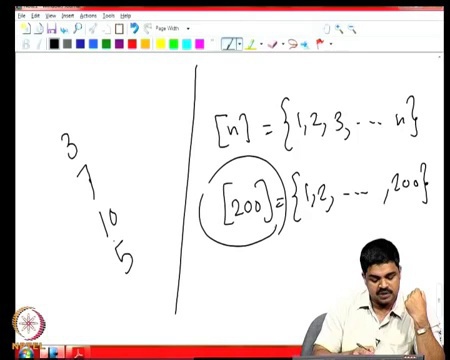 File Edit View Insert Actions Tools Help
Page Width
3
7
10
5
[n] = {1, 2, 3, ... n}
[200] = {1, 2, ..., 200}